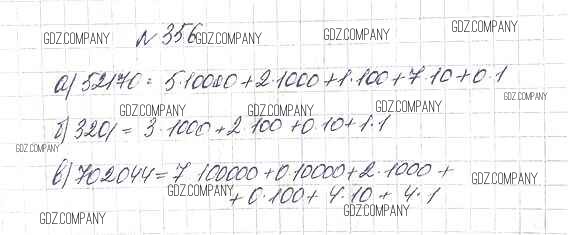 GDZ.COMPANY
№ 356
GDZ.COMPANY
GDZ.COMPANY
GDZ.COMPANY
а) 52170 = 5·10000 + 2·1000 + 1·100 + 7·10 + 0·1
GDZ.COMPANY
GDZ.COMPANY
GDZ.COMPANY
GDZ.COMPANY
б) 3201 = 3·1000 + 2·100 + 0·10 + 1·1
GDZ.COMPANY
в) 702044 = 7·100000 + 0·10000 + 2·1000 +
GDZ.COMPANY
GDZ.COMPANY
+ 0·100 + 4·10 + 4·1
GDZ.COMPANY
GDZ.COMPANY